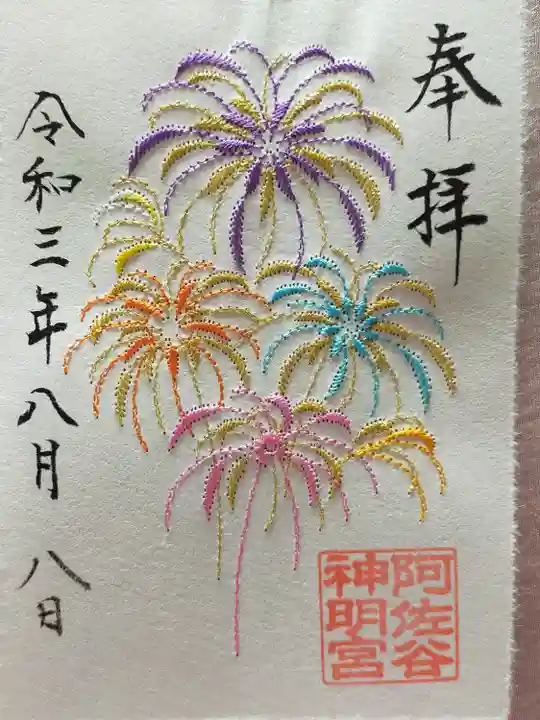 奉拝
阿佐谷
神明宮
令和三年八月八日